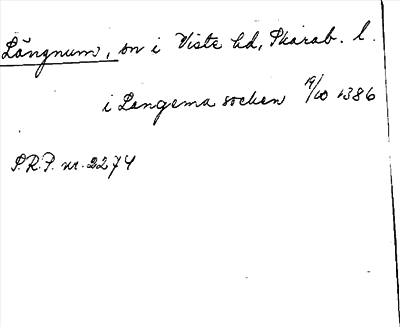 Längnum, sn i Viste hd, Skarab. l.
i Langema socken 19/10 1386
S.R.P. nr. 2274